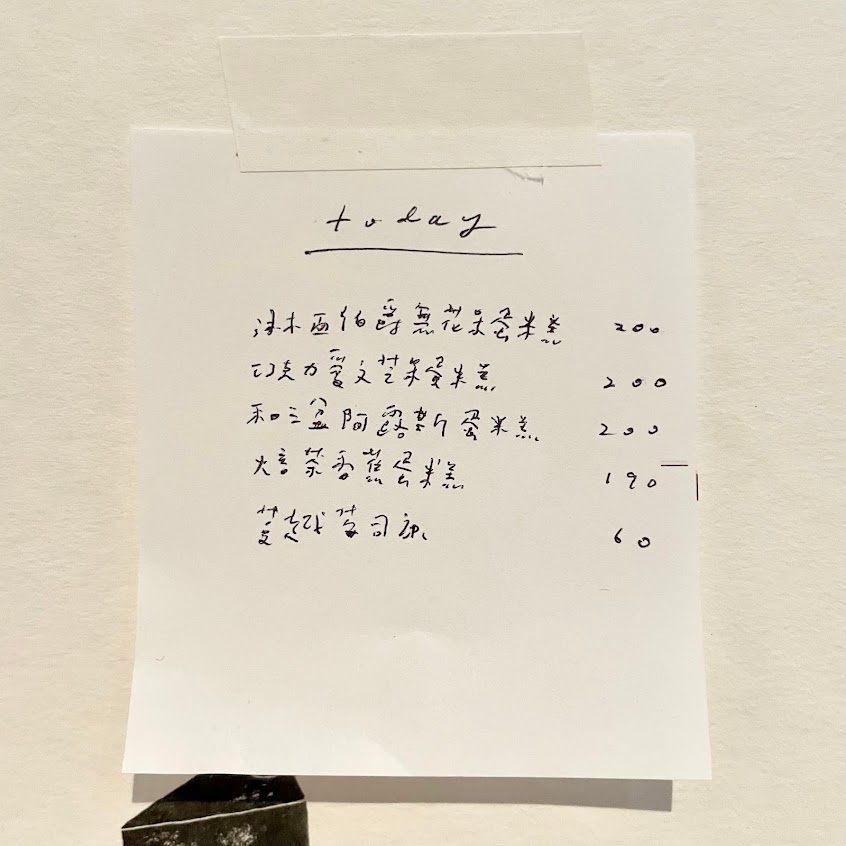 today
洋木西伯爵無花果蛋糕 200
巧克力愛文芒果蛋糕 200
和三盆阿露斯蛋糕 200
焙茶香蕉蛋糕 190
蔓越莓司康 60